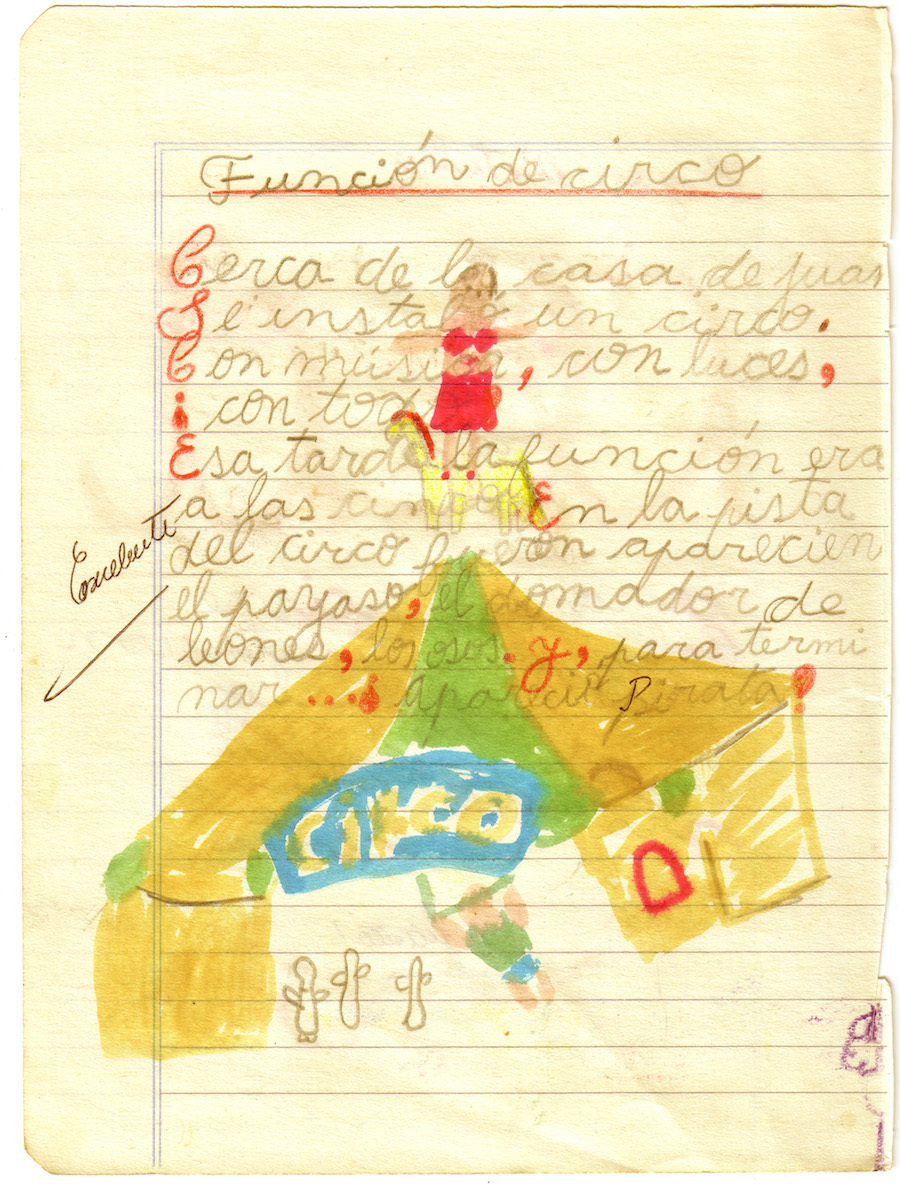 Función de circo
Cerca de la casa de juan
Se instaló un circo.
Con música, con luces,
¡con todo!
Esa tarde la función era
a las cinco En la pista
del circo fueron aparecien
el payaso, el domador de
leones, los osos. y, para termi
nar...¡ Apareció Pirata!
Excelente
CIRCO